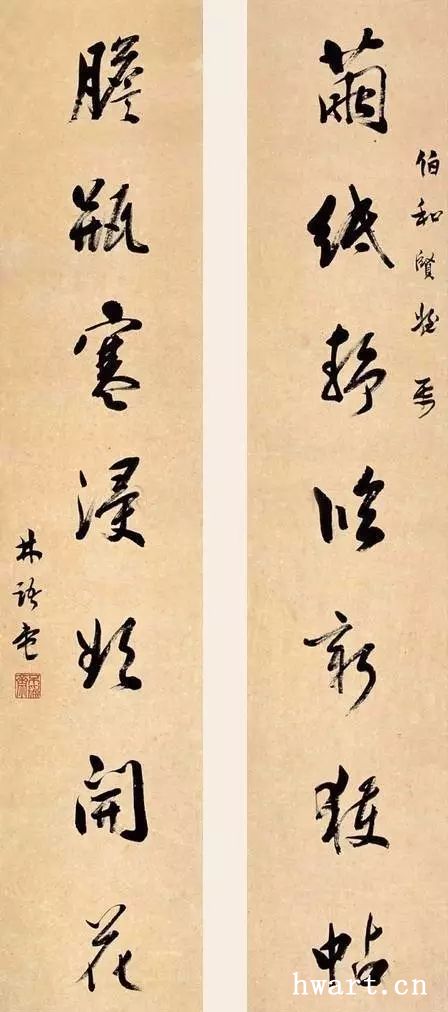 伯和賢姪屬
繭紙靜臨新獲帖
膽瓶寒浸欲開花
林語堂
hwart.cn